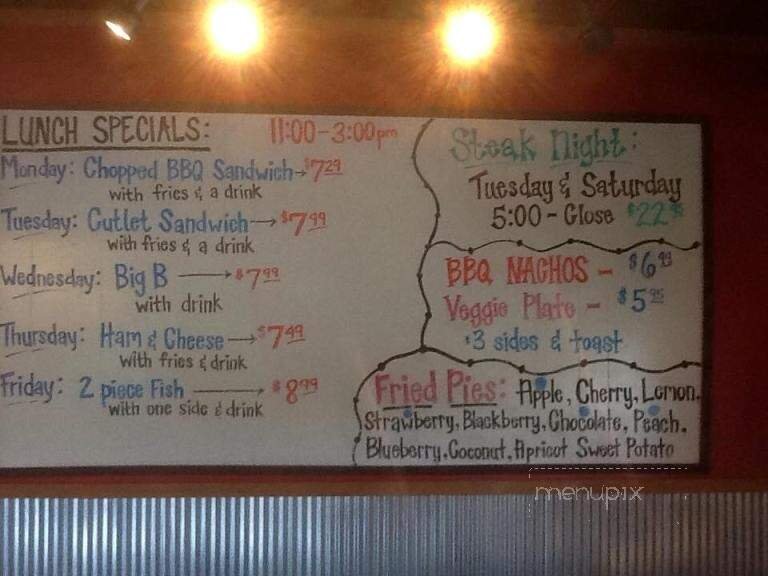 LUNCH SPECIALS: 11:00-3:00pm
Monday: Chopped BBQ Sandwich→$7.29
with fries & a drink
Tuesday: Cutlet Sandwich→$7.99
with fries & a drink
Wednesday: Big B →$7.99
with drink
Thursday: Ham & Cheese→$7.49
with fries & drink
Friday: 2 piece Fish →$8.99
with one side & drink
Steak Night:
Tuesday & Saturday
5:00-Close
BBQ NACHOS - $6.99
Veggie Plate - $5.95
3 sides & toast
Fried Pies: Apple, Cherry, Lemon,
Strawberry, Blackberry, Chocolate, Peach,
Blueberry, Coconut, Apricot Sweet Potato
menupix